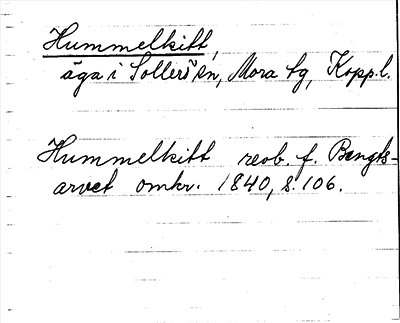 Hummelkitt,
äga i Sollerö sn, Mora tg, Kopp.l.
Hummelkitt reob. f. Bengts-
arvet omkr. 1840, s. 106.